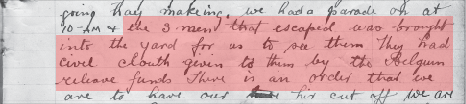 going hay making. we had a parade on at
10-AM & the 3 men that escaped was brought
into the yard for us to see them They had
civil clouth given to them by the Belguim
releave funds There is an order that we
are to have our hir cut off we are